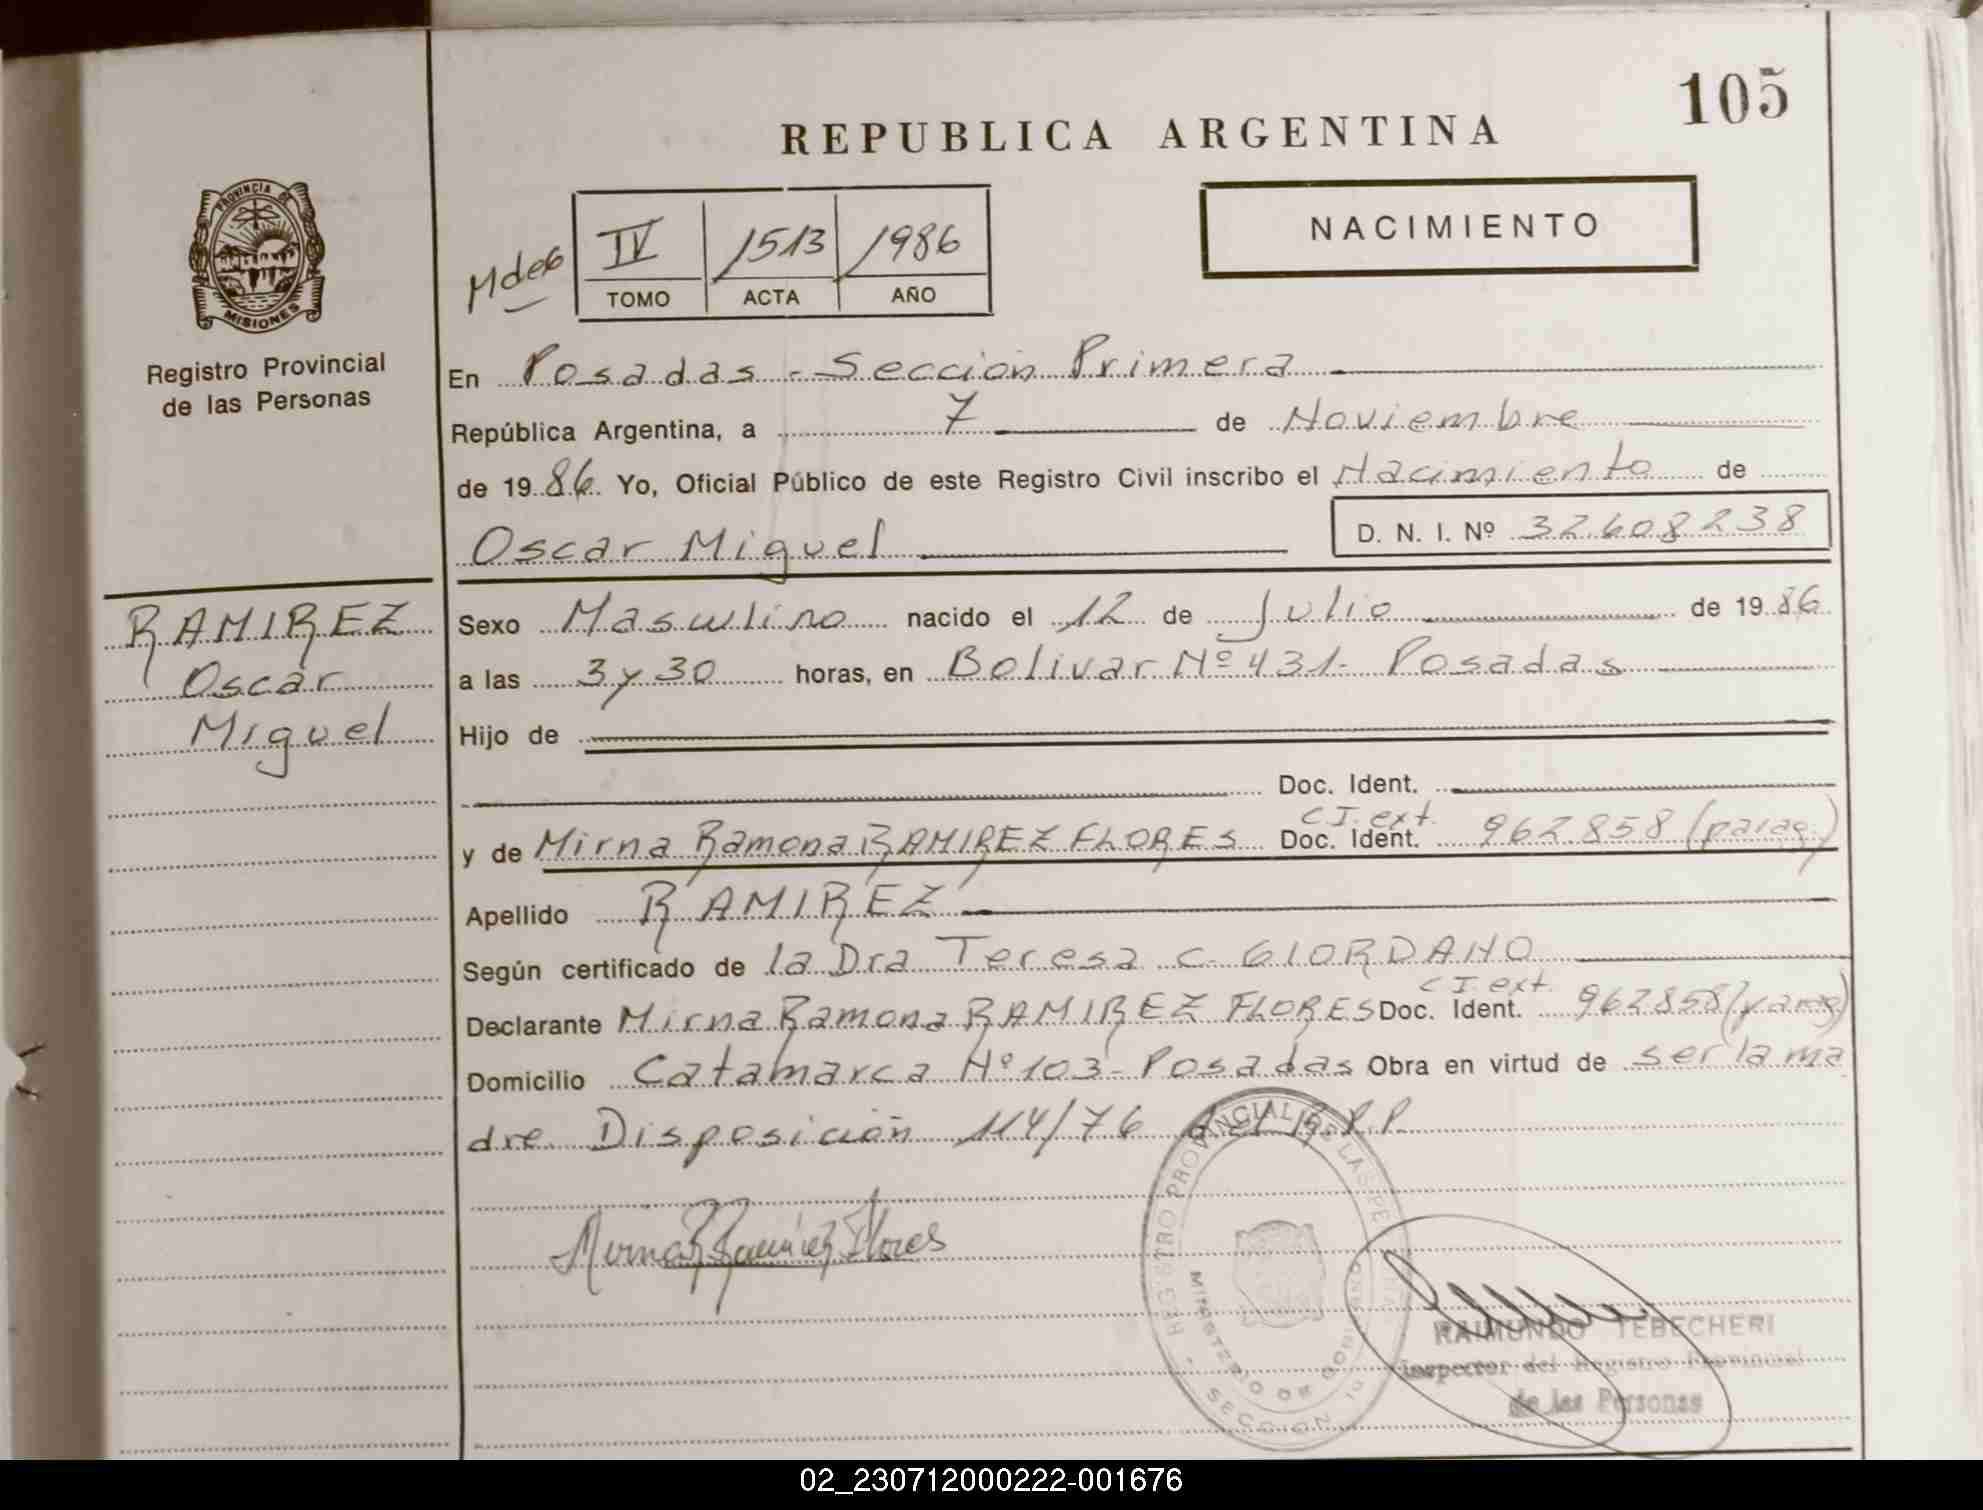 105
REPUBLICA ARGENTINA
PROVINCIA DE
MISIONES
Registro Provincial
de las Personas
IV 1513 1986
TOMO ACTA AÑO
NACIMIENTO
En Posadas - Sección Primera
República Argentina, a 7 de Noviembre
de 1986 Yo, Oficial Público de este Registro Civil inscribo el Nacimiento de
Oscar Miguel D. N. I. Nº 32.608.238
RAMIREZ
Oscar
Miguel
Sexo Masculino nacido el 12 de Julio de 1986
a las 3 y 30 horas, en Bolivar Nº 431- Posadas
Hijo de
Doc. Ident.
C.I. ext.
y de Mirna Ramona RAMIREZ FLORES Doc. Ident. 962.858 (parag.)
Apellido RAMIREZ
Según certificado de la Dra Teresa C. GIORDANO
C I. ext.
Declarante Mirna Ramona RAMIREZ FLORES Doc. Ident. 962858 (parag)
Domicilio Catamarca Nº 103- Posadas Obra en virtud de ser la ma
dre Disposición 114/76 del R.P.P.
Mirna R Ramirez Flores
REGISTRO PROVINCIAL DE LAS PERSONAS
MINISTERIO DE GOBIERNO
SECCION 1a
RAIMUNDO TEBECHERI
Inspector del Registro Provincial
de las Personas
02_230712000222-001676